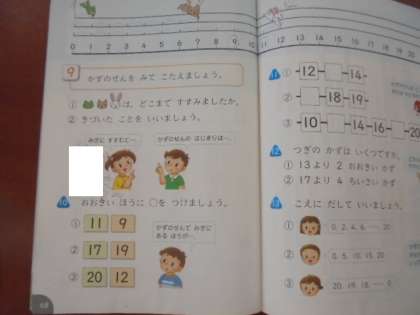 0 1 2 3 4 5 6 7 8 9 10 11 12 13 14 15 16 17 18 19 20
9 かずのせんを みて こたえましょう。
① は、どこまで すすみましたか。
② きづいた ことを いいましょう。
みぎに すすむと…
かずのせんの はじまりは…
10 おおきい ほうに ○を つけましょう。
① 11 9
② 17 19
③ 20 12
かずのせんで みぎに
ある ほうが…
68
11 ① 12 14
② 18 19
③ 10 14 16 20
12 つぎの かずは いくつですか。
① 13より 2 おおきい かず
② 17より 4 ちいさい かず
13 こえに だして いいましょう。
① 0, 2, 4, 6 … 20
② 0, 5, 10, 15, 20
③ 20, 19, 18, … 9